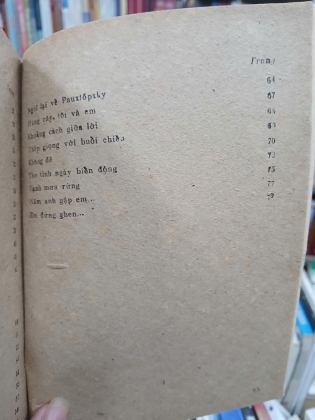 Trang
Nghĩ lại về Pauxtôpxky 64
Hàng cây, tôi và em 67
Khoảng cách giữa lời 68
Thấp giọng với buổi chiều 69
Không đề 70
Thơ tình ngày biển động 73
Hạnh mưa rừng 75
anh gặp em... 77
đừng ghen...